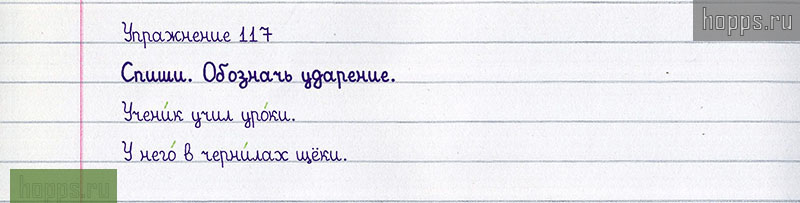 hopps.ru
Упражнение 117
Спиши. Обозначь ударение.
Учени́к учил уро́ки.
У него́ в черни́лах щёки.
hopps.ru